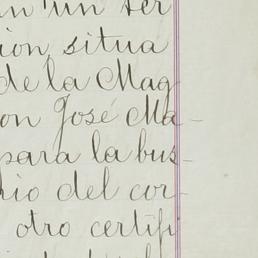 un ser
ion situa
de la Mag
on José Ma-
para la bus-
rio del cor-
otro certifi